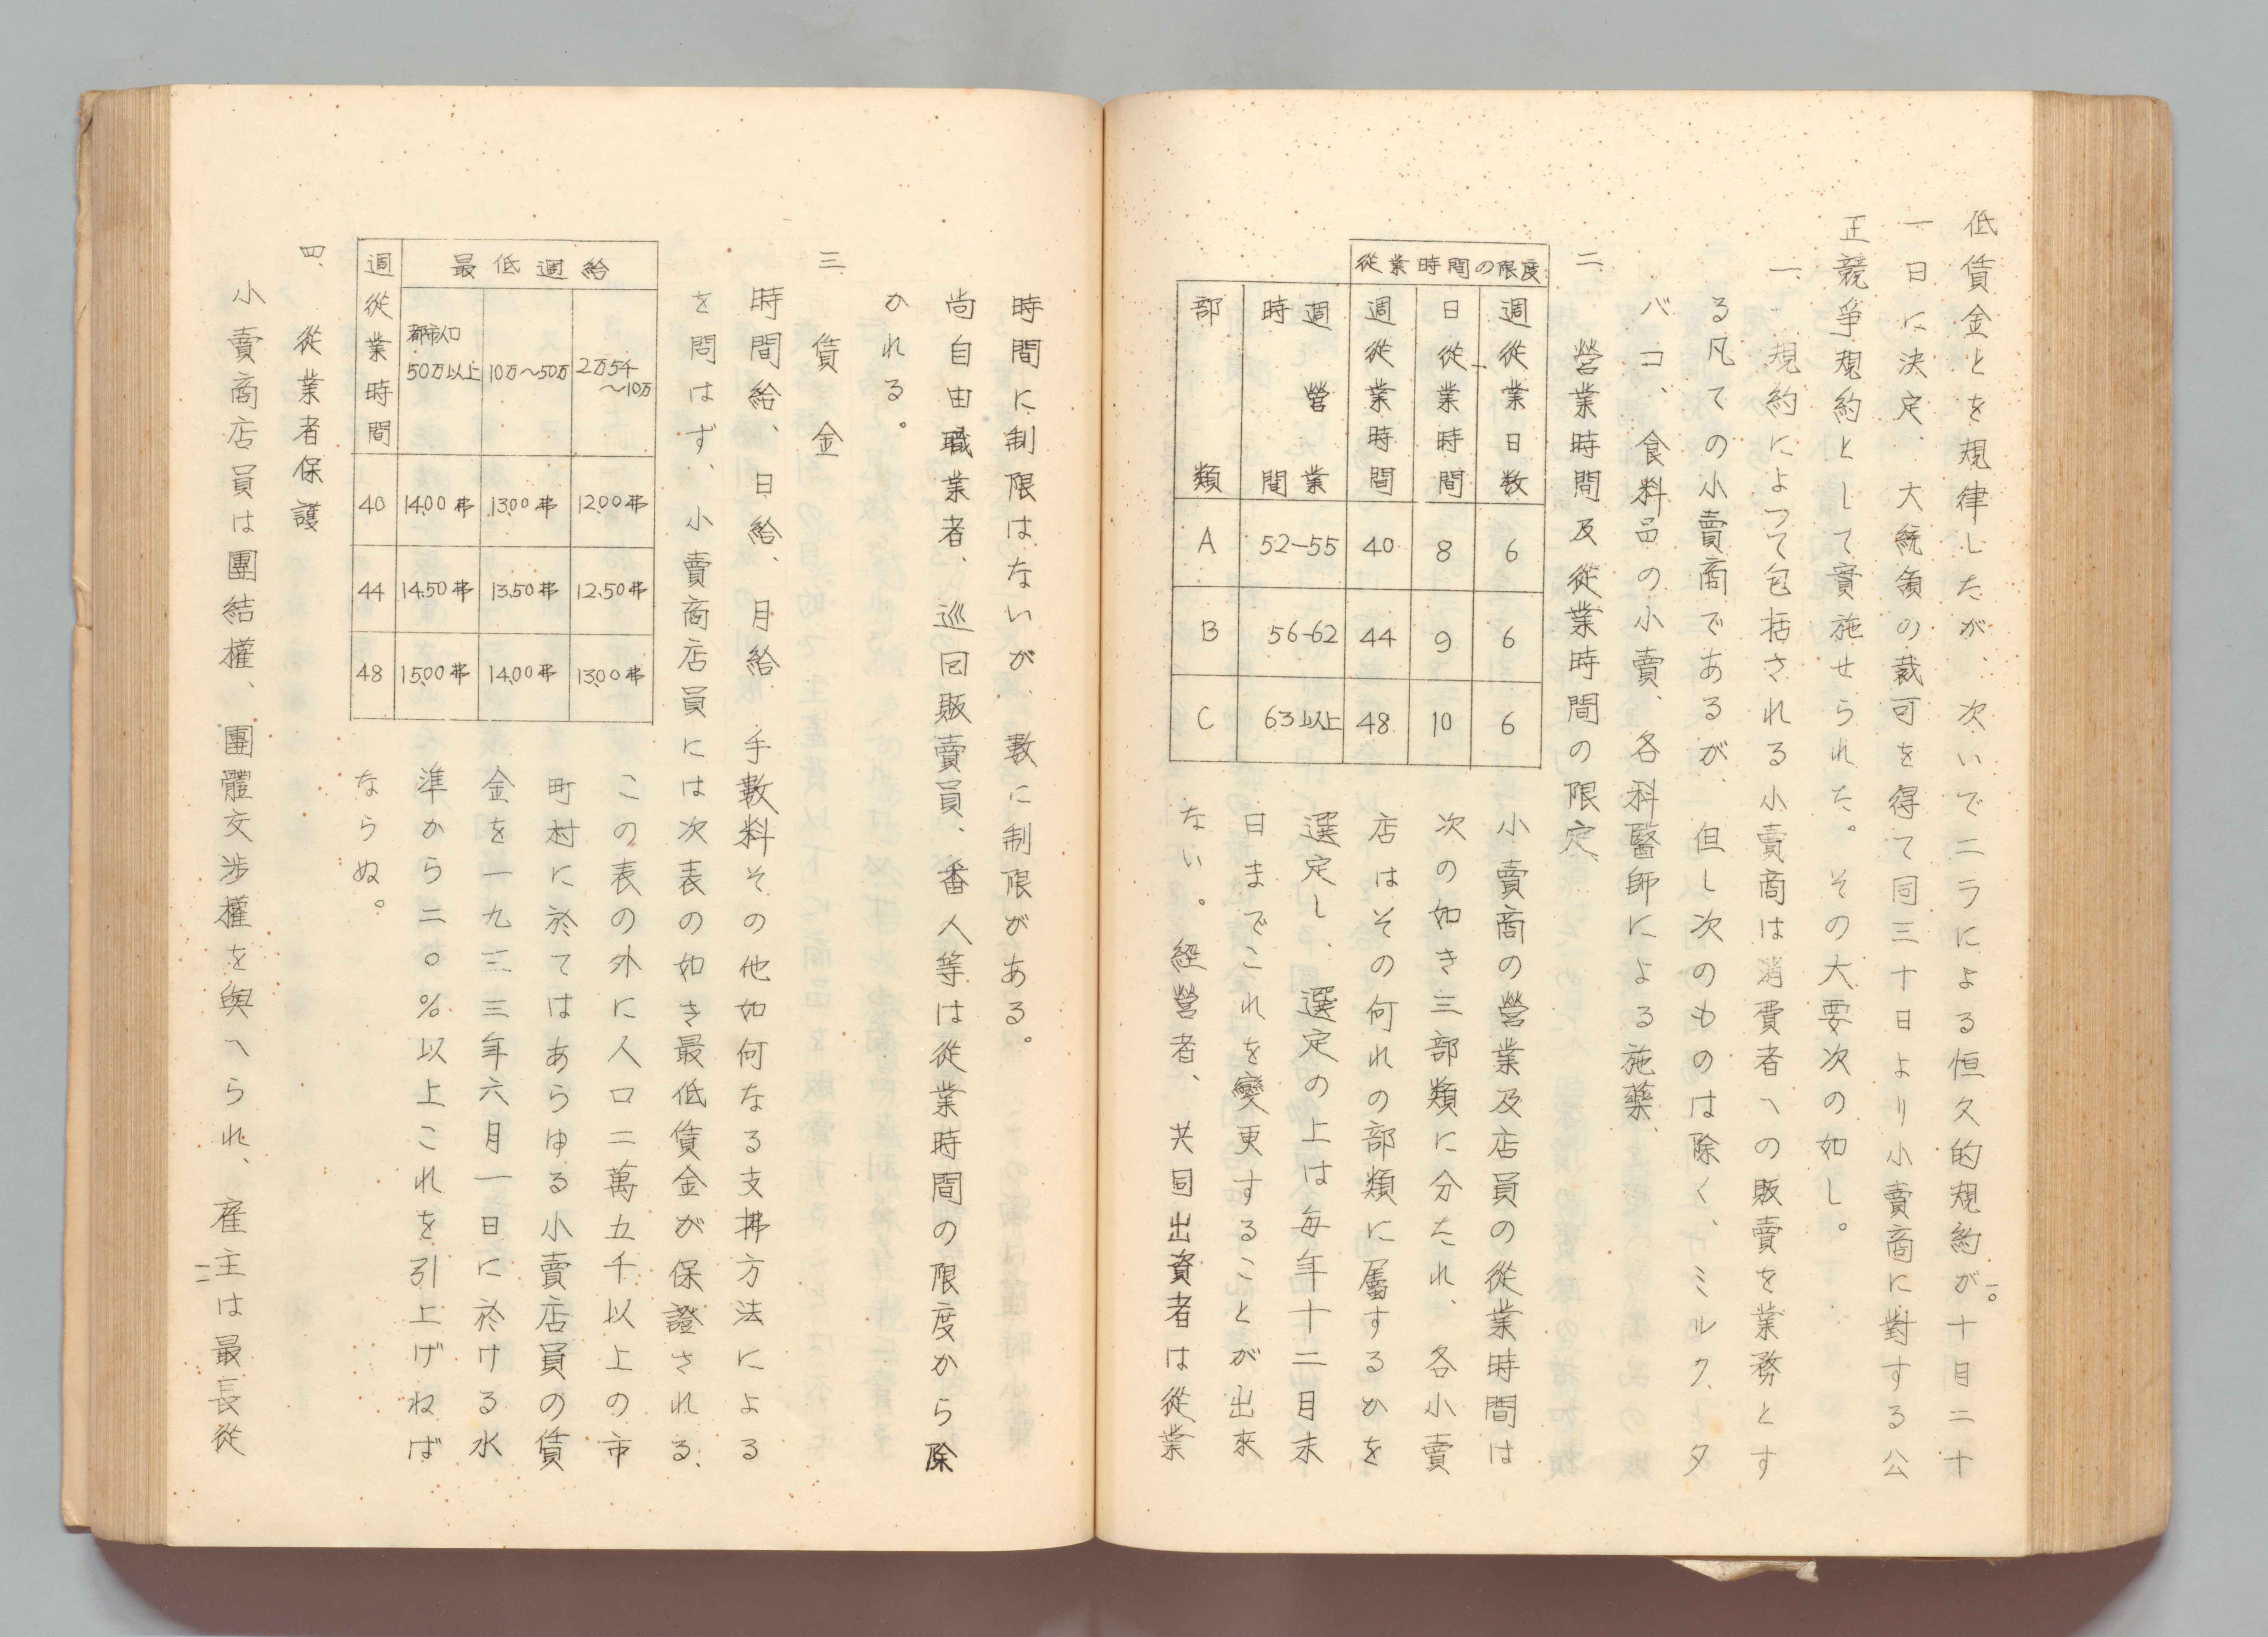 低賃金とを規律したが、次いでニラによる恒久的規約が十月二十
一日に決定、大統領の裁可を得て同三十日より小賣商に對する公
正競争規約として實施せられた。その大要次の如し。
一、規約によって包括される小賣商は消費者への販賣を業務とす
る凡ての小賣商であるが、但し次のものは除く、ミルク、タ
バコ、食料品の小賣、各科醫師による施藥、
二、營業時間及從業時間の限定、
從業時間の限度
週從業日数
日從業時間
週從業時間
週營業時間
部類
A 52-55 40 8 6
B 56-62 44 9 6
C 63以上 48 10 6
小賣商の營業及店員の從業時間は
次の如き三部類に分たれ、各小賣
店はその何れの部類に屬するかを
選定し、選定の上は毎年十二月末
日までこれを變更することが出來
ない。經營者、共同出資者は從業
時間に制限はないが、數に制限がある。
尚自由職業者、巡回販賣員、番人等は從業時間の限度から除
かれる。
三、賃金
時間給、日給、月給、手數料その他如何なる支拂方法による
を問はず、小賣商店員には次表の如き最低賃金が保證される、
最低週給
週從業時間
都市人口50万以上
10万〜50万
2万5千〜10万
40 14.00弗 13.00弗 12.00弗
44 14.50弗 13.50弗 12.50弗
48 15.00弗 14.00弗 13.00弗
この表の外に人口二萬五千以上の市
町村に於てはあらゆる小賣店員の賃
金を一九三三年六月一日に於ける水
準から二〇%以上これを引上げねば
ならぬ。
四、從業者保護
小賣商店員は團結權、團體交渉權を與へられ、雇主は最長從
二